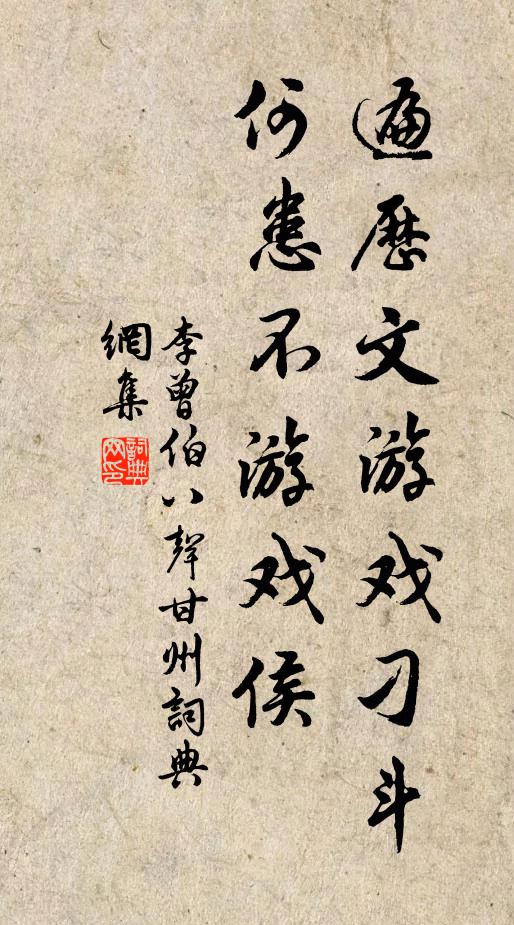 遍歷文游戏刁斗
何患不游戏侯
李曾伯八聲甘州詞典
網集
詞典
网印